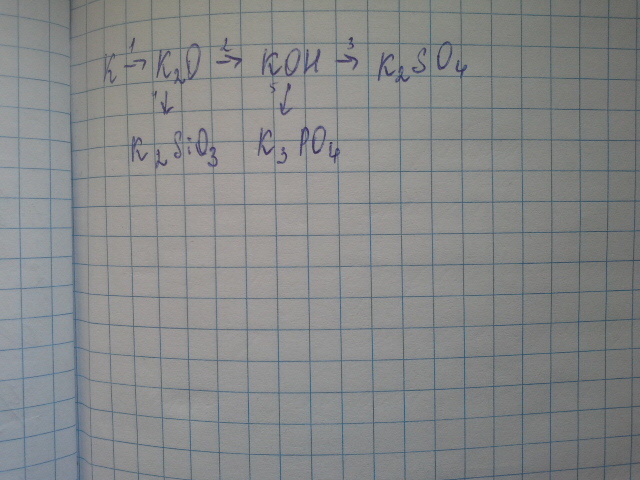 K →1 K₂O →2 KOH →3 K₂SO₄
↓ 5↓
K₂SiO₃ K₃PO₄